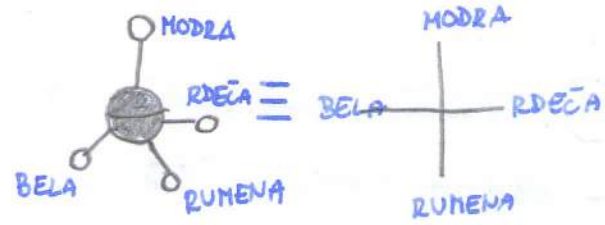 MODRA
RDEČA
BELA
RUMENA
≡
MODRA
BELA
RDEČA
RUMENA